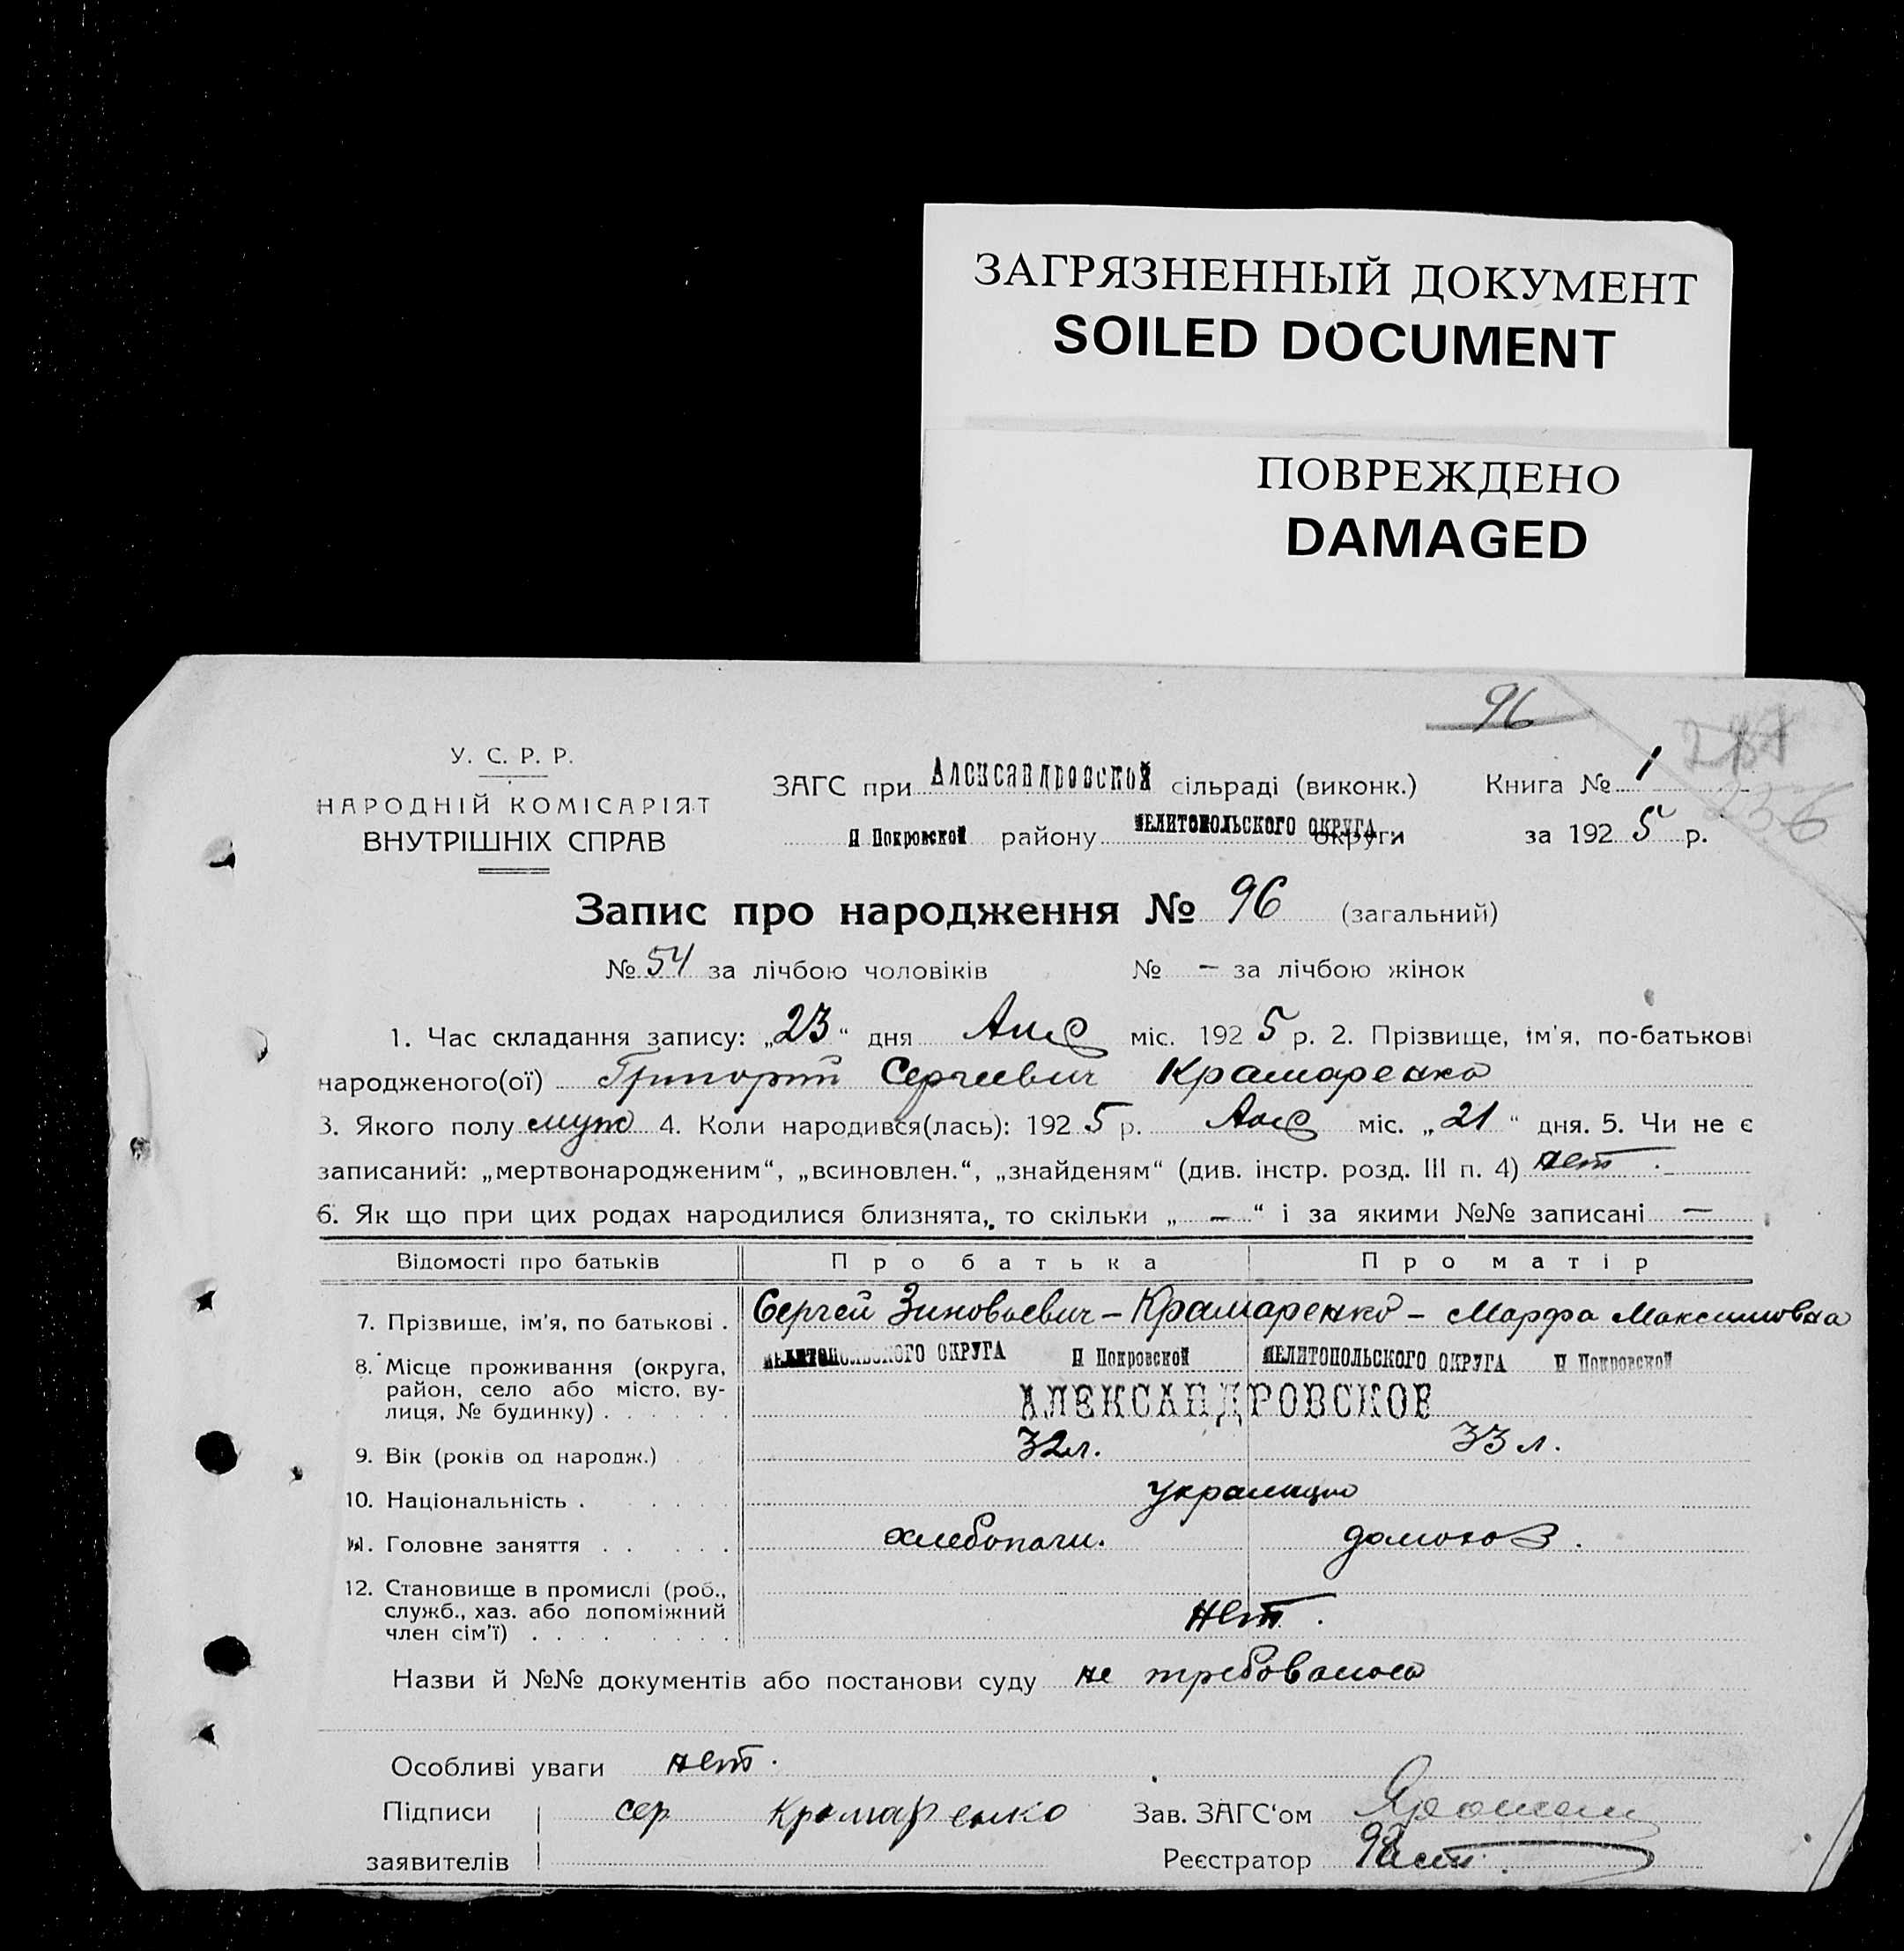 ЗАГРЯЗНЕННЫЙ ДОКУМЕНТ
SOILED DOCUMENT
ПОВРЕЖДЕНО
DAMAGED
96
256
У. С. Р. Р.
НАРОДНІЙ КОМІСАРІЯТ
ВНУТРІШНІХ СПРАВ
ЗАГС при Александровской сільраді (виконк.) Книга № 1
Н Покровской району МЕЛИТОПОЛЬСКОГО ОКРУГА округи за 1925 р.
Запис про народження № 96 (загальний)
№ 54 за лічбою чоловіків № — за лічбою жінок
1. Час складання запису: „23“ дня міс. 1925 р. 2. Прізвище, ім'я, по-батькові
народженого(ої) Григорий Сергеевич Крамаренко
3. Якого полу муж 4. Коли народився(лась): 1925 р. міс. „21“ дня. 5. Чи не є
записаний: „мертвонародженим“, „всиновлен.“, „знайденям“ (див. інстр. розд. III п. 4) нет.
6. Як що при цих родах народилися близнята, то скільки „—“ і за якими №№ записані —
Відомості про батьків Про батька Про матір
7. Прізвище, ім'я, по батькові. Сергей Зиновьевич – Крамаренко – Марфа Максимовна
8. Місце проживання (округа, МЕЛИТОПОЛЬСКОГО ОКРУГА Н Покровской МЕЛИТОПОЛЬСКОГО ОКРУГА Н Покровской
район, село або місто, ву-
лиця, № будинку) . . . . . . АЛЕКСАНДРОВСКОЕ
9. Вік (років од народж.) 32 л. 33 л.
10. Національність . . . . . .
11. Головне заняття . . . . . хлебопаш. домохоз.
12. Становище в промислі (роб.,
служб., хаз. або допоміжний нет.
член сім'ї) . . . . . . . .
Назви й №№ документів або постанови суду не требовалось
Особливі уваги нет.
Підписи сер Крамаренко Зав. ЗАГС'ом
заявителів Реєстратор